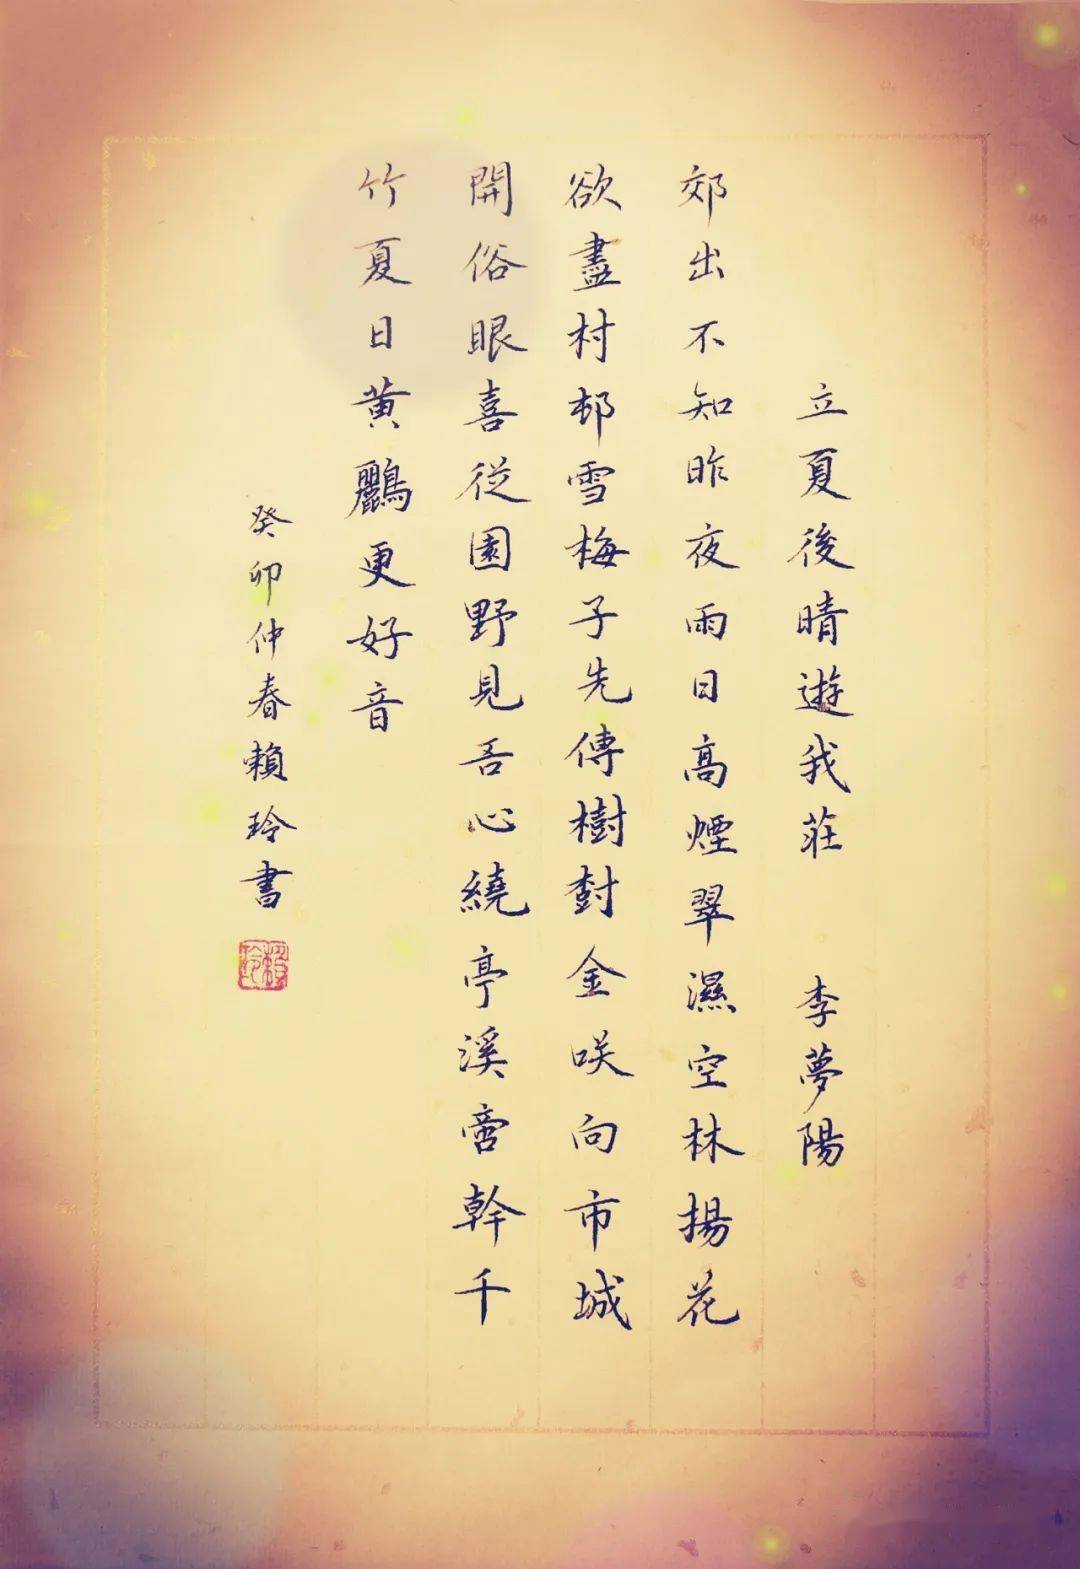 立夏後晴遊我莊 李夢陽
郊出不知昨夜雨日高煙翠濕空林揚花
欲盡村邨雪梅子先傳樹樹金咲向市城
開俗眼喜從園野見吾心繞亭溪啻幹千
竹夏日黄鸝更好音
癸卯仲春賴玲書
賴玲